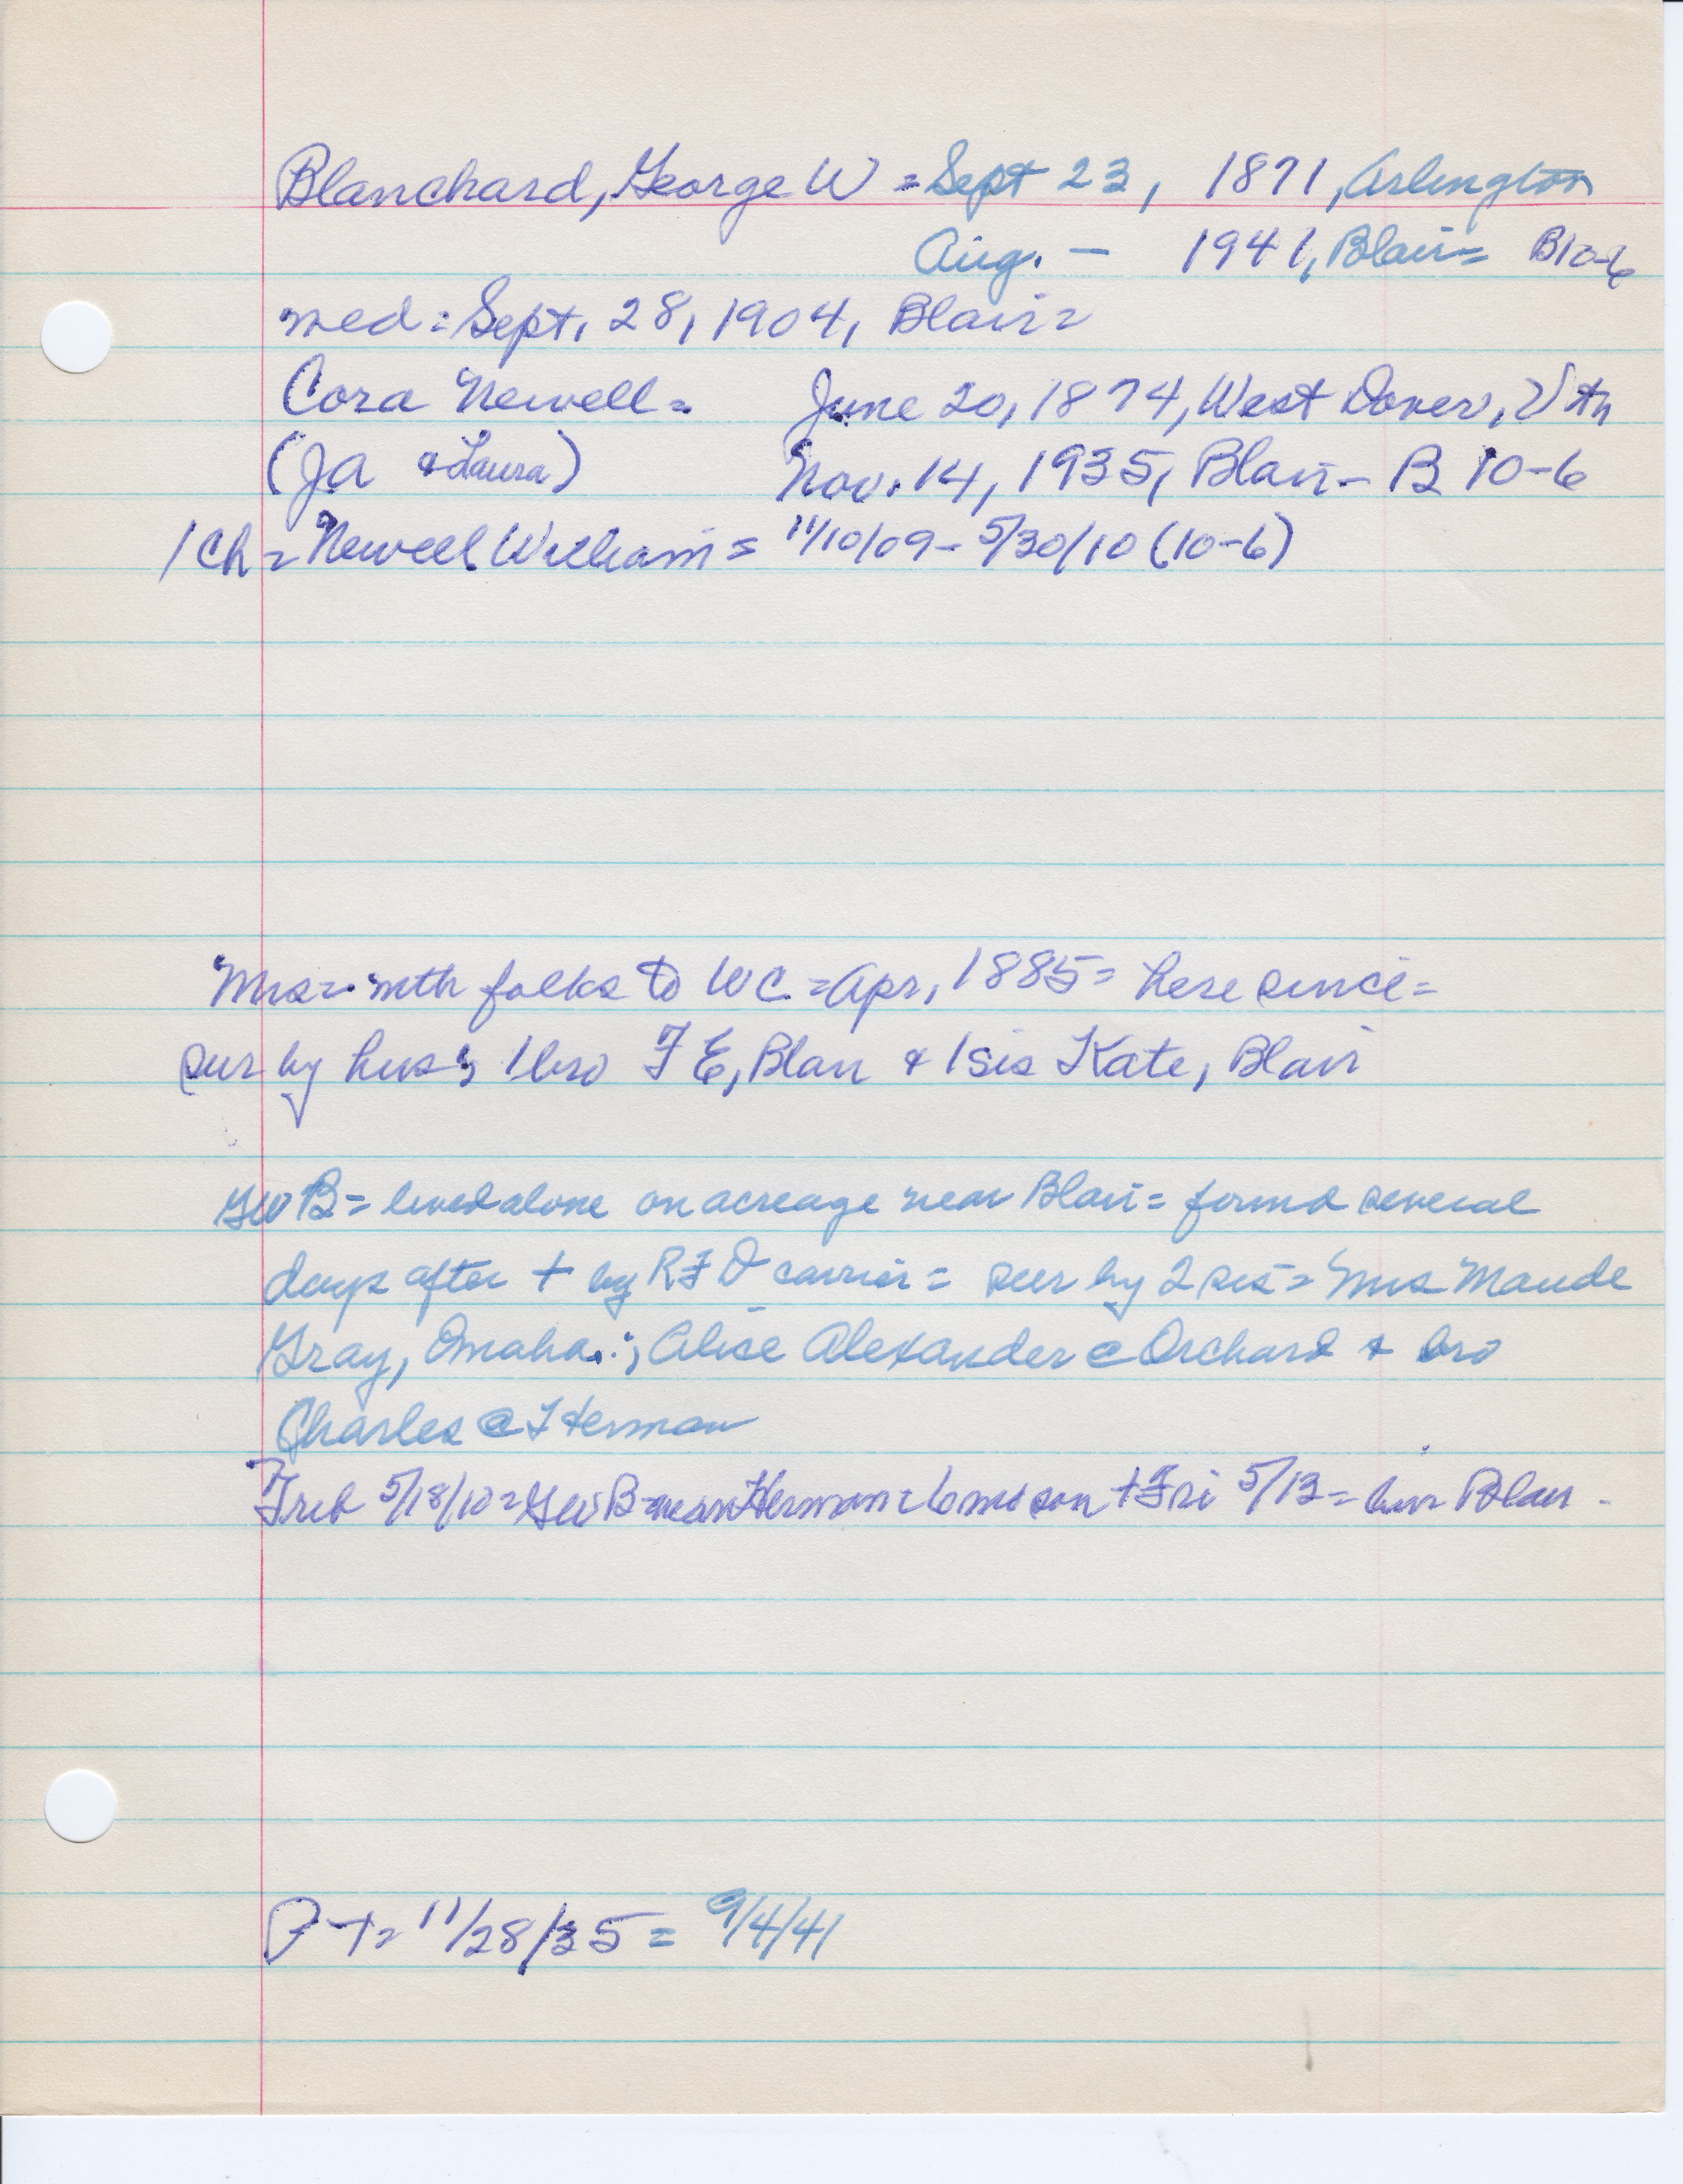 Blanchard, George W = Sept 23, 1871, Arlington
Aug. — 1941, Blair = B10-6
med: Sept. 28, 1904, Blair =
Cora Newell = June 20, 1874, West Dover, Vtn
(JA & Laura) Nov. 14, 1935, Blair - B 10-6
1 Ch = Newell William = 11/10/09 - 5/30/10 (10-6)
Mrs = with folks to WC = Apr, 1885 = here since =
sur by hus, 1 bro F E, Blair & 1 sis Kate, Blair
GWB = lived alone on acreage near Blair = found several
days after + by RFD carrier = sur by 2 sis = Mrs Maude
Gray, Omaha; Alice Alexander @ Orchard & bro
Charles @ Herman
Trib 5/18/10 = GWB near Herman = 6 mo son + Fri 5/13 = bur Blair -
PT = 11/28/35 = 9/4/41